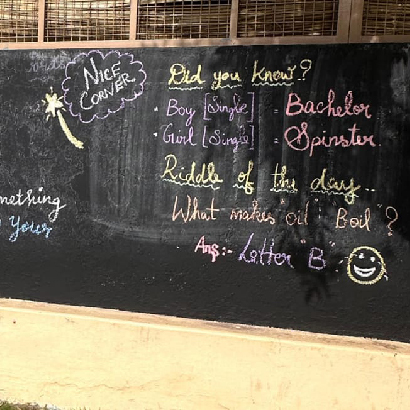 NICE
CORNER
Did you know?
Boy [Single] = Bachelor
Girl [Single] = Spinster.
Riddle of the day..
What makes "oil" "Boil"?
Ans:- Letter "B"
mething
your